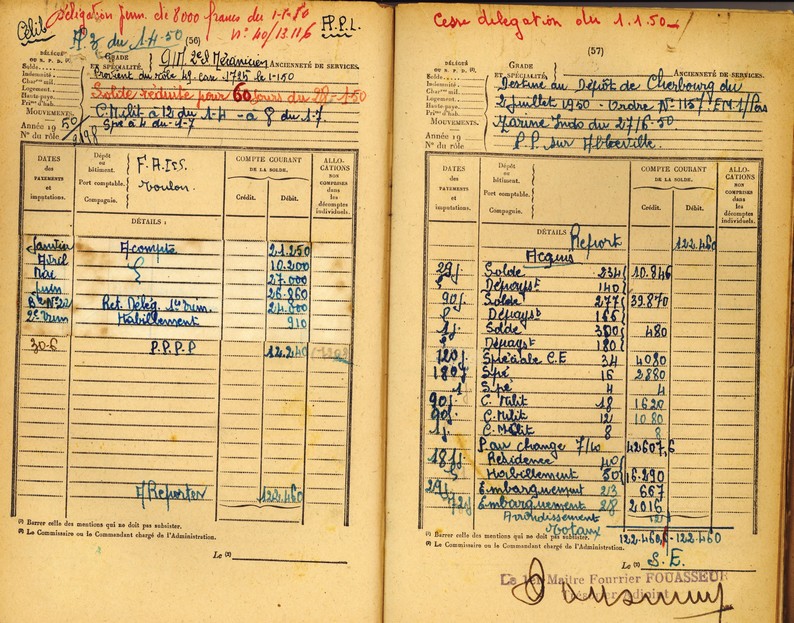 Délégation perm. de 8000 francs du 1-1-50
Célib
N° 40/13.11.6 P.P.L.
du 1-4-50 (56)
DÉLÉGUÉ
OU S. P. D. (1)
GRADE
ET SPÉCIALITÉ,
QM 2e Cl Mécanicien
ANCIENNETÉ DE SERVICES.
Solde
Indemnité
Char mil.
Logement
Haute-paye
Pri d'hab.
Provient du rôle 49 case 1725 le 1-1-50
Solde réduite pour 60 jours du 28-1-50
MOUVEMENTS.
C. Milit à 12 du 1-4 - à 8 du 1-7
Année 19 50
Spé à 4 du 1-7
N° du rôle 2198
DATES
des
PAYEMENTS
et
imputations.
Dépôt
ou
bâtiment.
Port comptable.
Compagnie.
Toulon.
COMPTE COURANT
DE LA SOLDE.
Crédit.
Débit.
ALLO-
CATIONS
NON
COMPRISES
dans
les
décomptes
individuels.
DÉTAILS :
Janvier Acompte 21.250
Avril 10.200
Mai 27.000
Juin 26.860
Ret. Délég. 1er Trim. 24.000
2e Trim Habillement 910
30-6 P.P.P.P 12.240
A Reporter 122.460
(1) Barrer celle des mentions qui ne doit pas subsister.
(2) Le Commissaire ou le Commandant chargé de l'Administration.
Le (2)
Cesse délégation du 1.1.50
(57)
DÉLÉGUÉ
OU S. P. D. (1)
GRADE
ET SPÉCIALITÉ,
ANCIENNETÉ DE SERVICES.
Solde
Indemnité
Char mil.
Logement
Haute-paye
Pri d'hab.
Destiné au Dépôt de Cherbourg du
2 juillet 1950 - Ordre N° 1157 EM.1/Pers
MOUVEMENTS.
Marine Indo du 27/6-50
Année 19
P.P. sur Abbeville.
N° du rôle
DATES
des
PAYEMENTS
et
imputations.
Dépôt
ou
bâtiment.
Port comptable.
Compagnie.
COMPTE COURANT
DE LA SOLDE.
Crédit.
Débit.
ALLO-
CATIONS
NON
COMPRISES
dans
les
décomptes
individuels.
DÉTAILS
Report 122.460
Acquis
29j. Solde 234 10.846
Dépayst 140
90j. Solde 277 39.870
Dépayst 166
1j Solde 300 480
Dépayst 180
120j. Spéciale C.E 34 4080
180j Spé 16 2880
1 Spé 4 4
90j. C. Milit 18 1620
90j. C. Milit 12 1080
1j C. Milit 8 8
P. au change 7/10 42607,6
181j. Résidence 40
Habillement 50 16.290
29j. Embarquement 23 667
72j Embarquement 28 2016
Arrondissement
Totaux 122.460,6 - 122.460
(1) Barrer celle des mentions qui ne doit pas subsister.
(2) Le Commissaire ou le Commandant chargé de l'Administration.
Le (2) S.E.
Le 1er Maître Fourrier FOUASSEUR